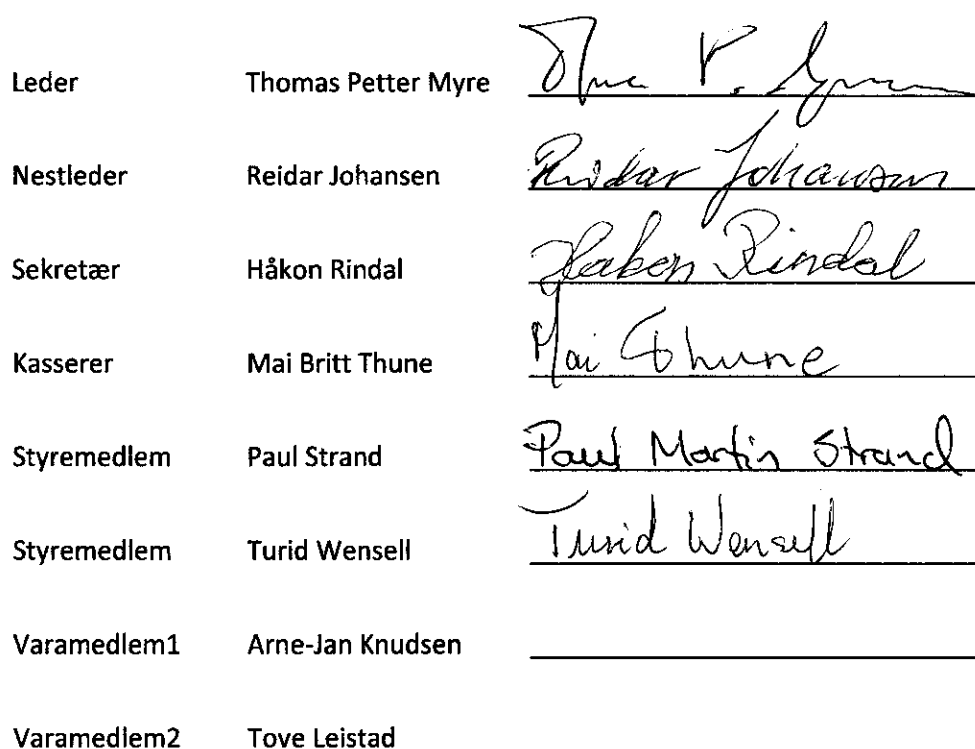 Leder Thomas Petter Myre P.
Nestleder Reidar Johansen Reidar Johansen
Sekretær Håkon Rindal Håkon Rindal
Kasserer Mai Britt Thune Mai Thune
Styremedlem Paul Strand Paul Martin Strand
Styremedlem Turid Wensell Turid Wensell
Varamedlem1 Arne-Jan Knudsen
Varamedlem2 Tove Leistad